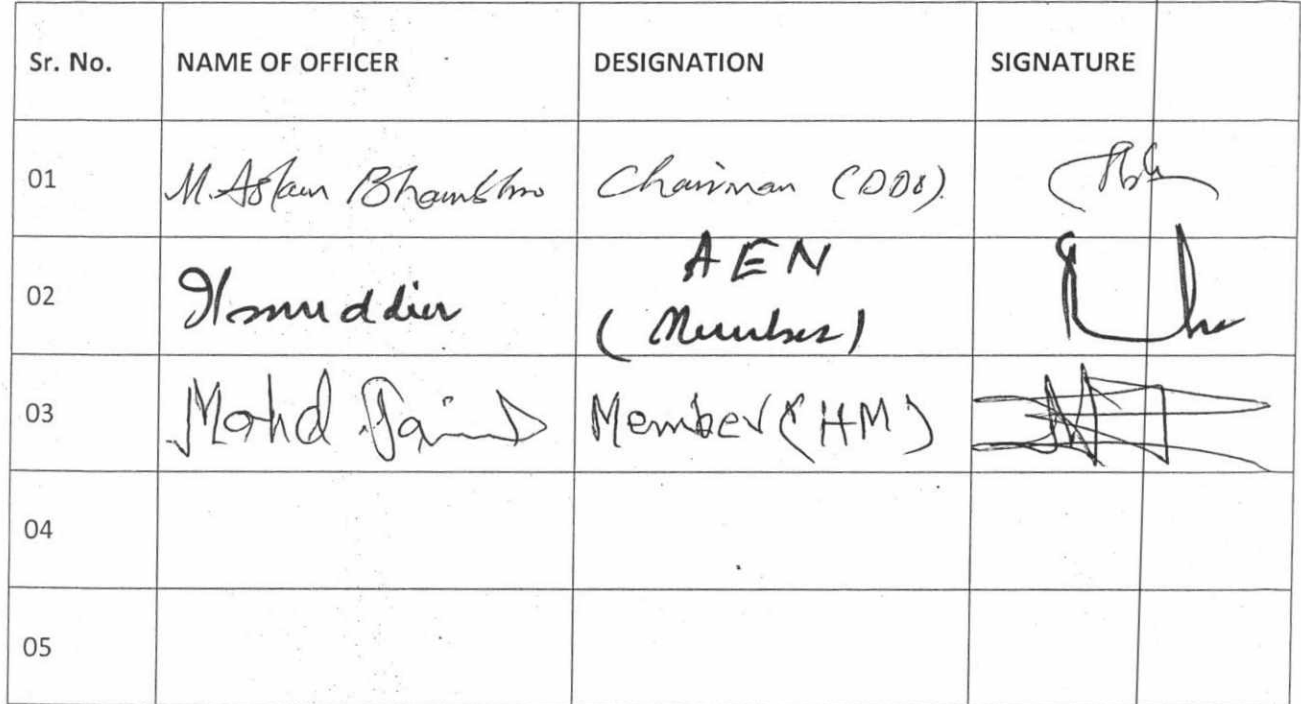 Sr. No. NAME OF OFFICER DESIGNATION SIGNATURE
01 M. Aslam Bhambhro Chairman (DDO).
02 AEN
(Member)
03 Mohd Member (HM)
04
05